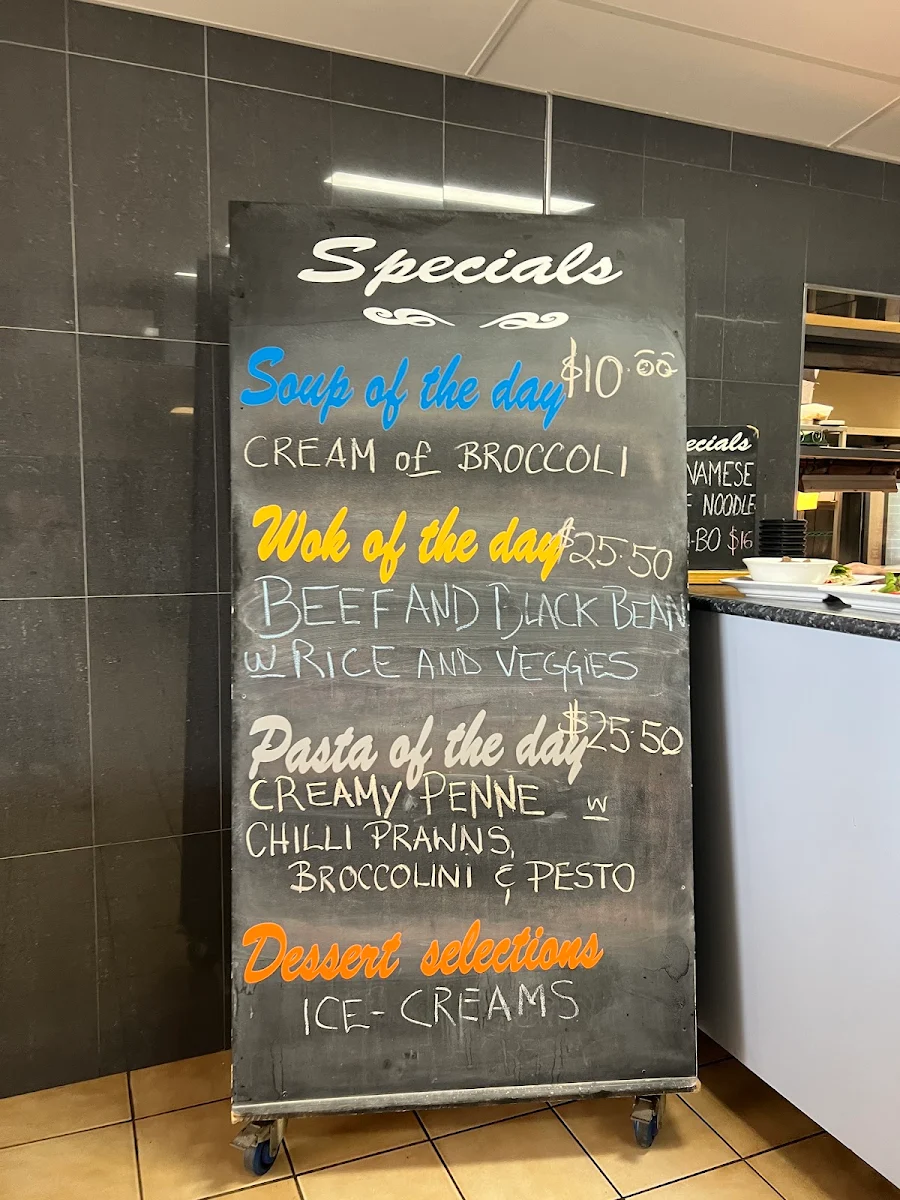 Specials
Soup of the day $10.00
CREAM of BROCCOLI
Wok of the day $25.50
BEEF AND BLACK BEAN
W RICE AND VEGGIES
Pasta of the day $25.50
CREAMY PENNE w
CHILLI PRAWNS,
BROCCOLINI & PESTO
Dessert selections
ICE-CREAMS
ecials
NAMESE
NOODLE
-BO $16